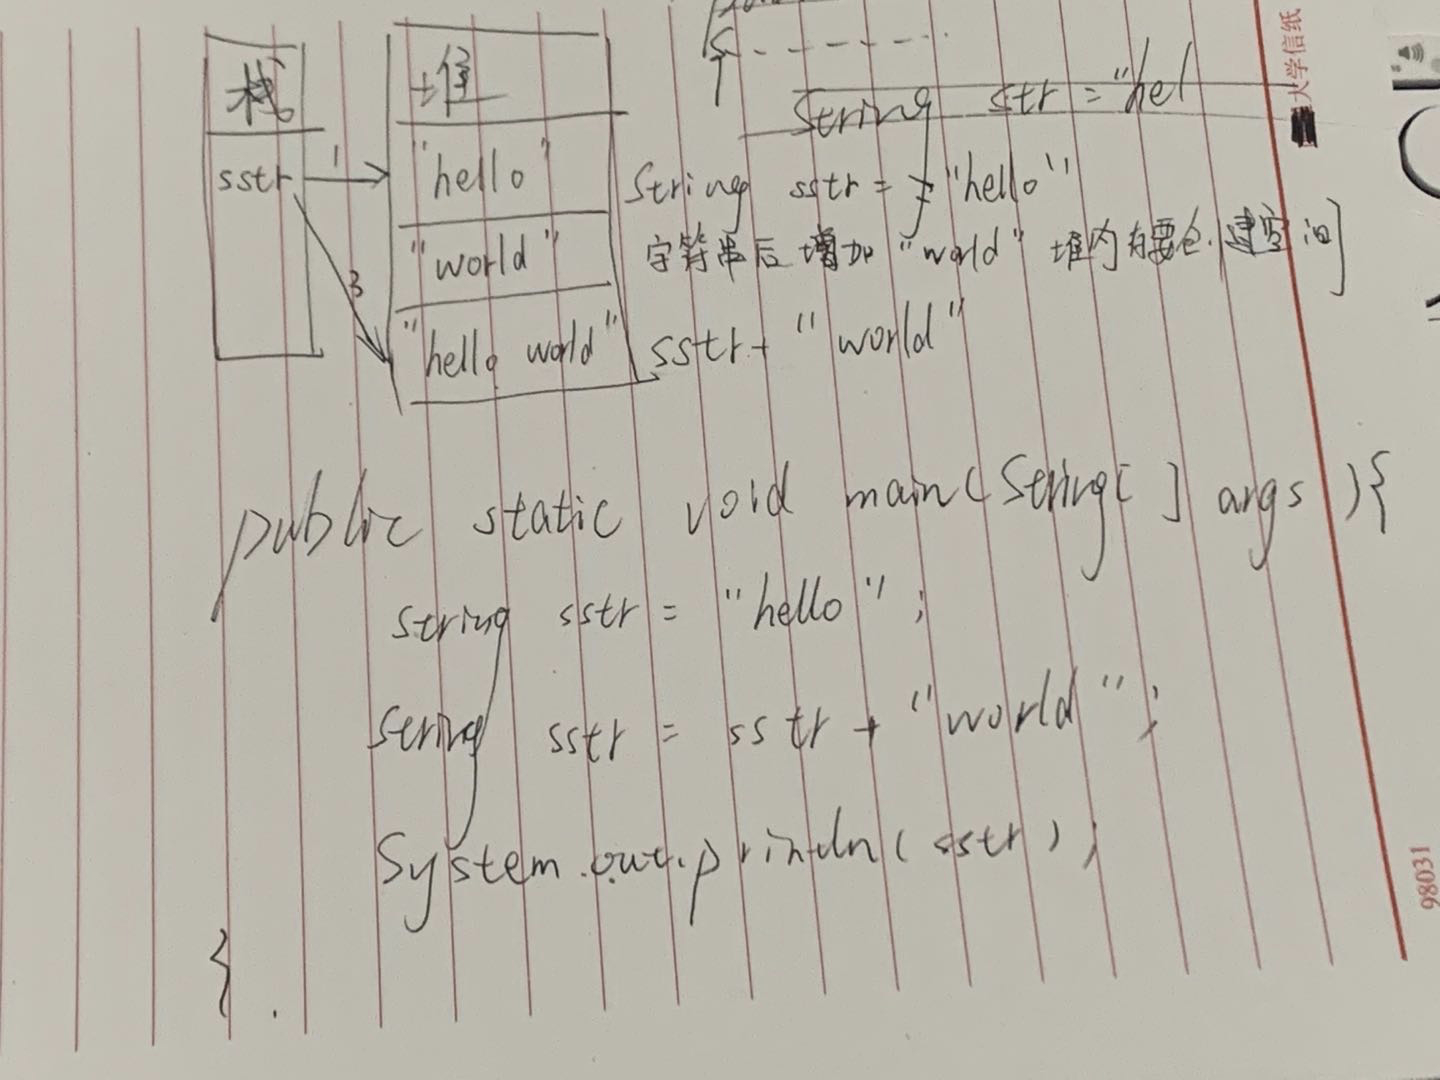 String str = "hel
大学信纸
栈
堆
sstr
1
"hello"
String sstr = "hello"
"world"
字符串后增加 "world" 堆内 要 建空间
3
"hello world"
sstr + "world"
public static void main(String[] args){
string sstr = "hello";
String sstr = sstr + "world";
System.out.println(sstr);
}
98031